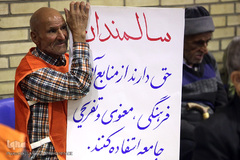 سالمندان
حق دارند از منابع آ
فرهنگی، معنوی و تفریحی
جامعه استفاده کنند.